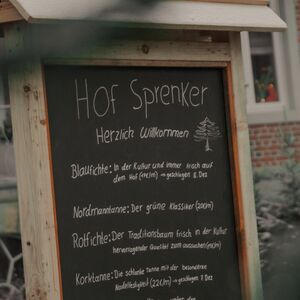 Hof Sprenker
Herzlich Willkommen
Blaufichte: In der Kultur und immer frisch auf
dem Hof → geschlagen 8. Dez
Nordmanntanne: Der grüne Klassiker (20€/m)
Rotfichte: Der Traditionsbaum frisch in der Kultur
hervorragender Qualität zum aussuchen
Korktanne: Die schlanke Tanne mit der besonderen
Nadelfestigkeit (22€/m) → geschlagen 8. Dez